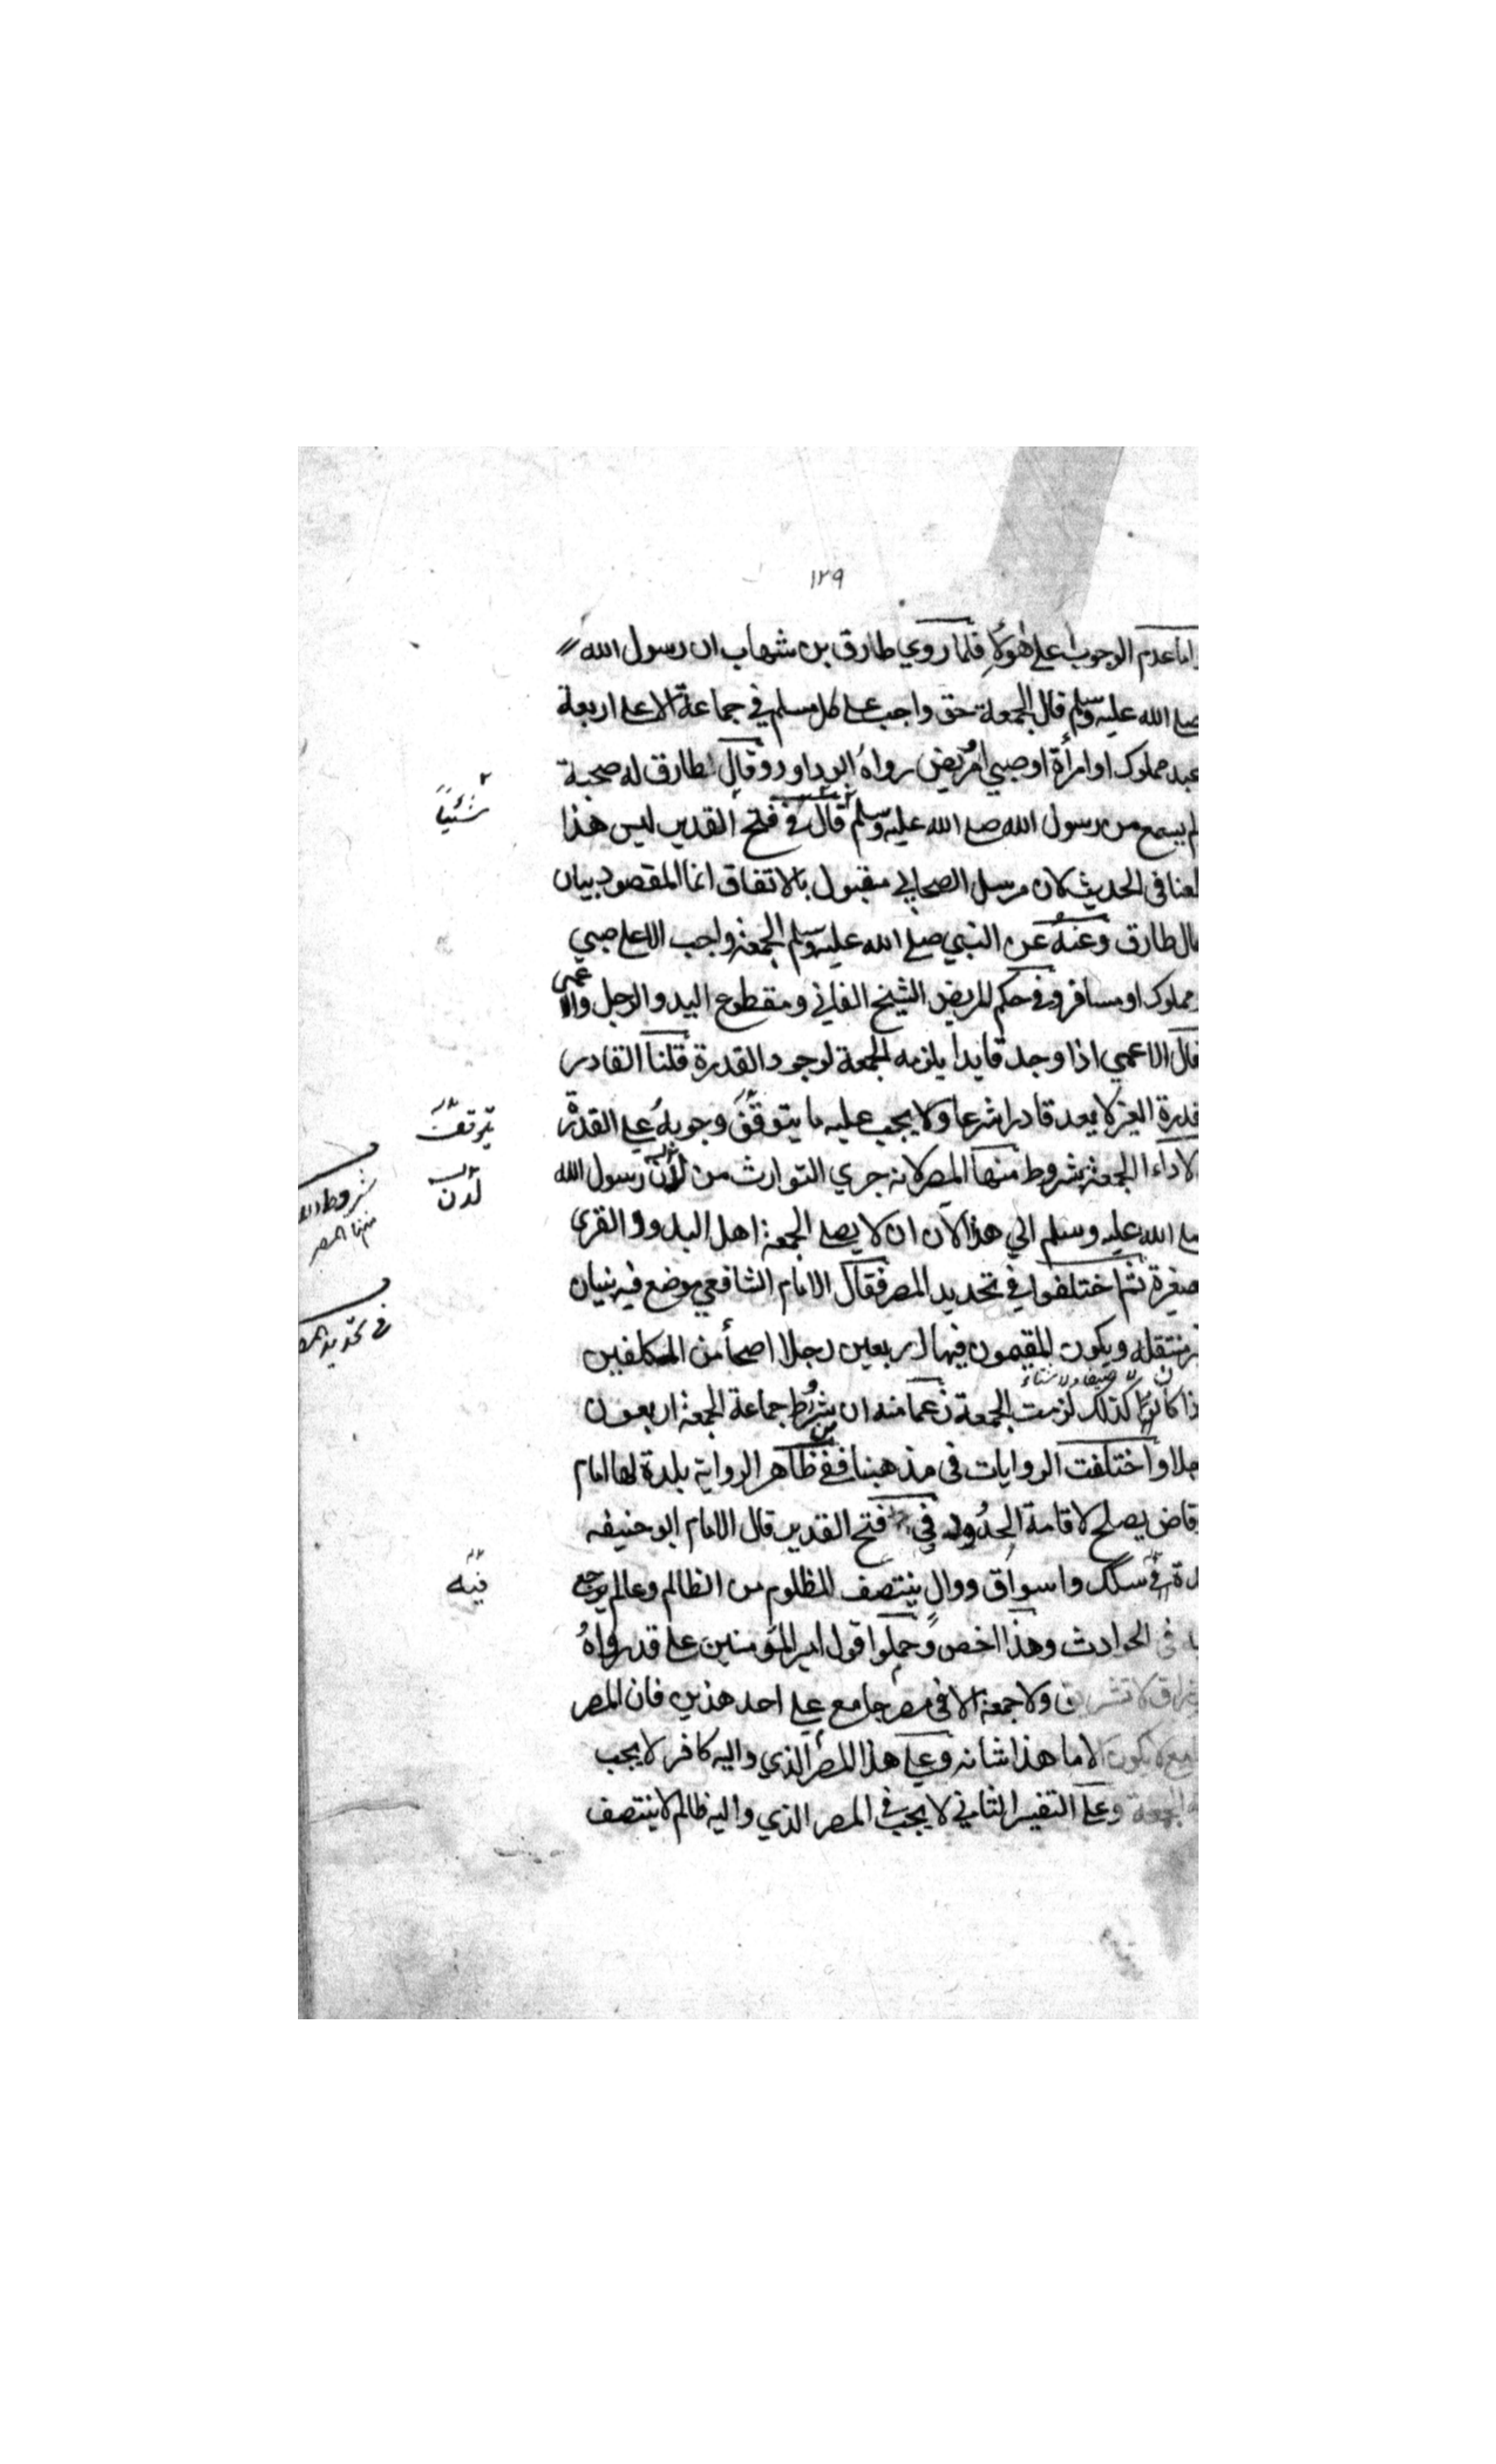 ١٢٩
اما عدم الوجوب على هؤلاء فلما روي طارق بن شهاب ان رسول الله
صلى الله عليه وسلم قال الجمعة حق واجب على كل مسلم في جماعة الا على اربعة
عبد مملوك او امرأة او صبي او مريض رواه ابو داود وقال طارق له صحبة
لم يسمع من رسول الله صلى الله عليه وسلم قال في فتح القدير ليس هذا
شيئاً
طعنا في الحديث لان مرسل الصحابي مقبول بالاتفاق انما المقصود بيان
حال طارق وعنه عن النبي صلى الله عليه وسلم الجمعة واجب الا على صبي
مملوك او مسافر وفي حكم المريض الشيخ الفاني ومقطوع اليد والرجل والاعمى
قال الاعمي اذا وجد قايدا يلزمه الجمعة لوجود القدرة قلنا القادر
قدرة الغير لا يعد قادرا شرعا ولا يجب عليه ما يتوقف وجوبه على القدرة
يتوقف
لاداء الجمعة شروط منها المصر لانه جري التوارث من لدن رسول الله
لدن
شروط
منها المصر
صلى الله عليه وسلم الي هذا الآن ان لا يصلي الجمعة اهل البدو والقرى
صغيرة ثم اختلفوا في تحديد المصر فقال الامام الشافعي موضع فيه بنيان
في تحديد
منتقلة ويكون المقيمون فيها اربعين رجلا اصحأ من المكلفين
لا صيفا ولا شتاء
كانوا كذلك لزمت الجمعة زعما منه ان شرط جماعة الجمعة اربعون
رجلا واختلفت الروايات في مذهبنا ففي ظاهر الرواية بلدة لها امام
قاض يصلح لاقامة الحدود في فتح القدير قال الامام ابو حنيفه
في سكك واسواق ووالٍ ينتصف للمظلوم من الظالم وعالم يرجع
فيه
في الحوادث وهذا اخص وحملوا قول امير المؤمنين علي قد رواه
لا تشريق ولا جمعة الا في مصر جامع علي احد هذين فان المصر
لا يكون الا ما هذا شانه وعلي هذا المصر الذي واليه كافر لا يجب
الجمعة وعلى التفسير الثاني لا يجب في المصر الذي واليه ظالم لا ينتصف